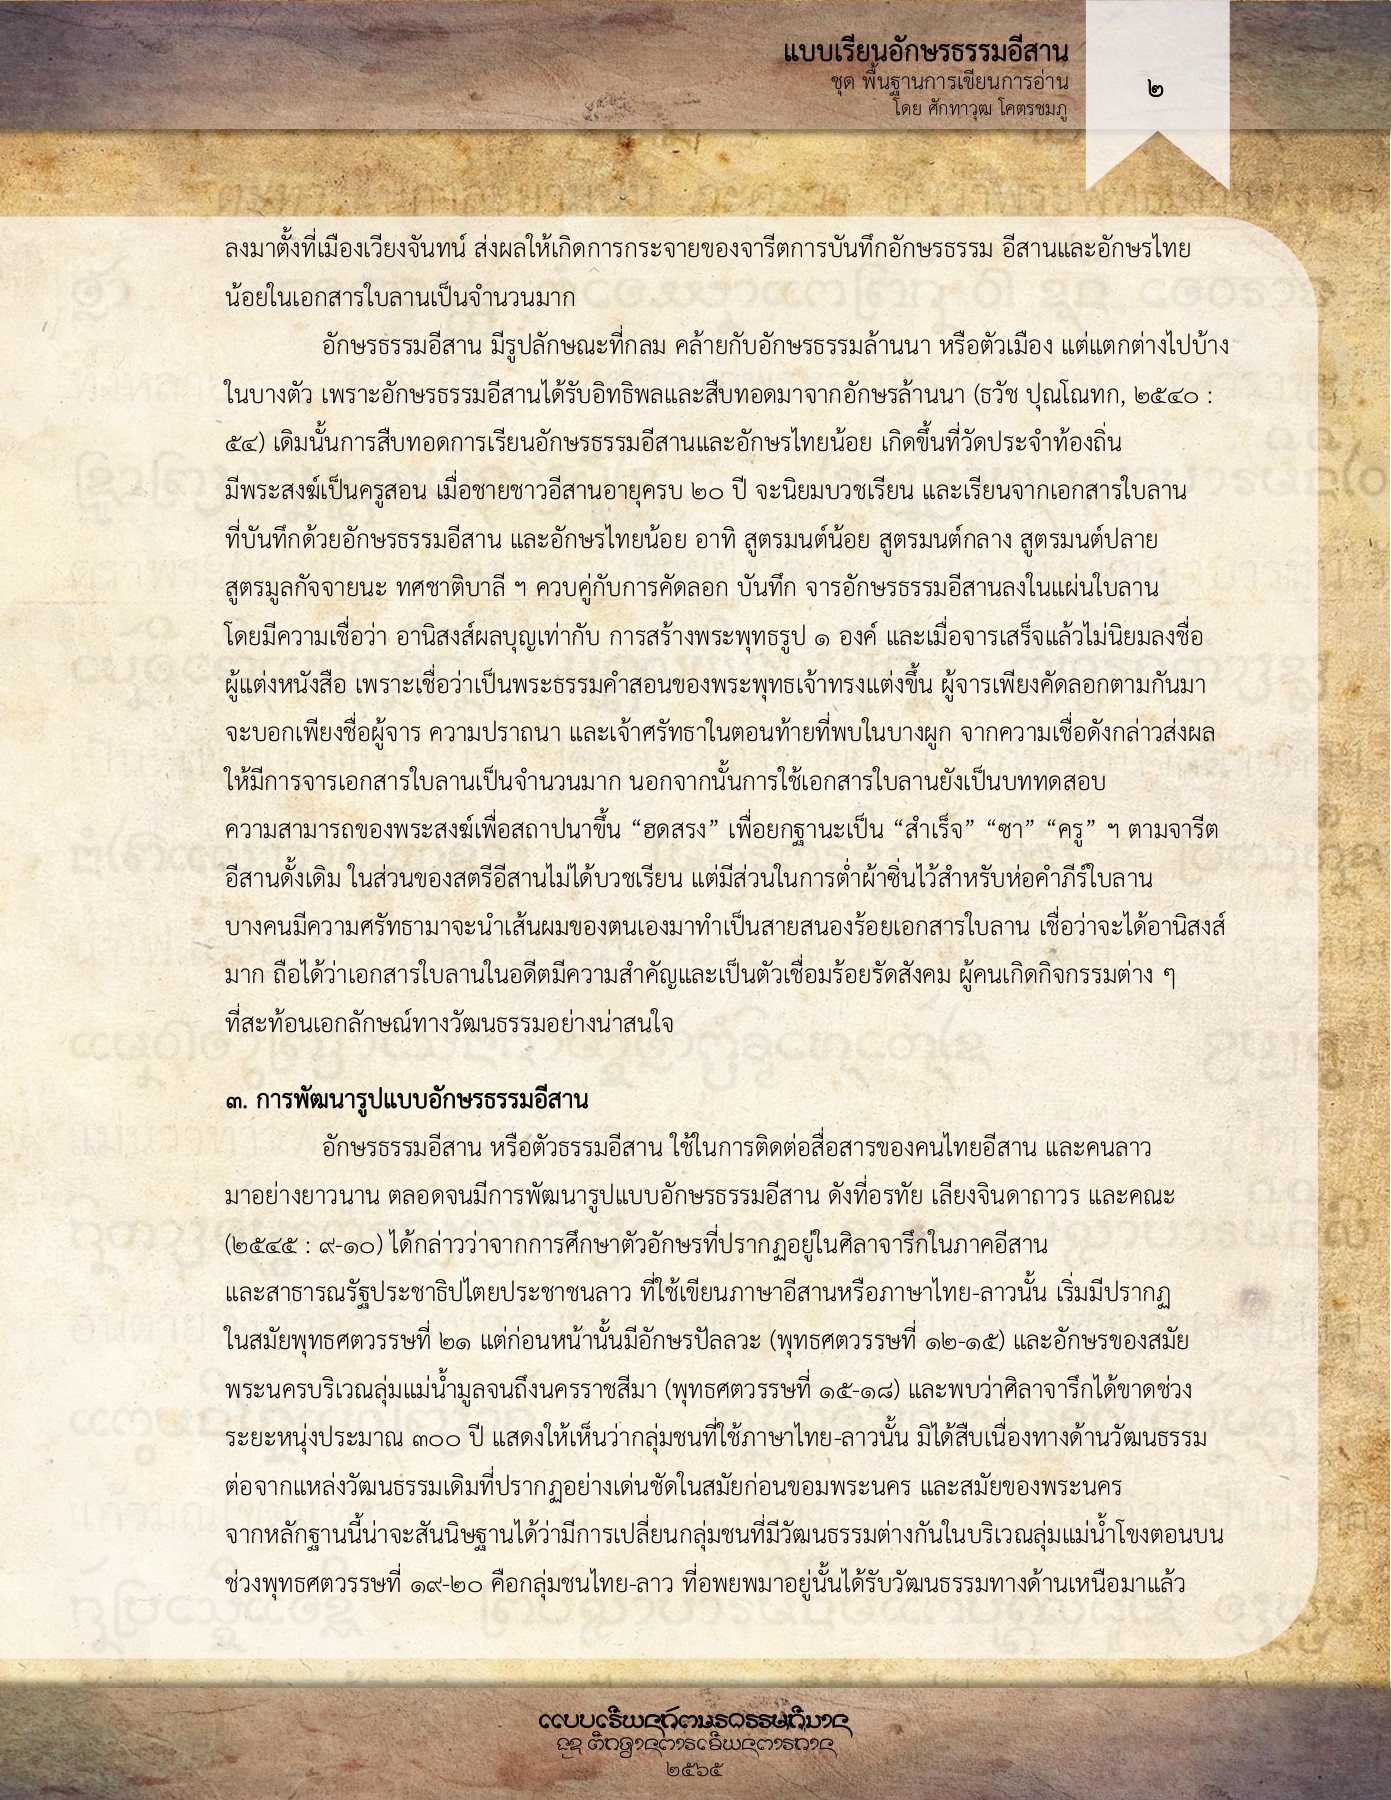 แบบเรียนอักษรธรรมอีสาน
ชุด พื้นฐานการเขียนการอ่าน
โดย ศักทาวุฒ โคตรชมภู
๒
ลงมาตั้งที่เมืองเวียงจันทน์ ส่งผลให้เกิดการกระจายของจารีตการบันทึกอักษรธรรม อีสานและอักษรไทย
น้อยในเอกสารใบลานเป็นจำนวนมาก
อักษรธรรมอีสาน มีรูปลักษณะที่กลม คล้ายกับอักษรธรรมล้านนา หรือตัวเมือง แต่แตกต่างไปบ้าง
ในบางตัว เพราะอักษรธรรมอีสานได้รับอิทธิพลและสืบทอดมาจากอักษรล้านนา (ธวัช ปุณโณทก, ๒๕๔๐ :
๕๔) เดิมนั้นการสืบทอดการเรียนอักษรธรรมอีสานและอักษรไทยน้อย เกิดขึ้นที่วัดประจำท้องถิ่น
มีพระสงฆ์เป็นครูสอน เมื่อชายชาวอีสานอายุครบ ๒๐ ปี จะนิยมบวชเรียน และเรียนจากเอกสารใบลาน
ที่บันทึกด้วยอักษรธรรมอีสาน และอักษรไทยน้อย อาทิ สูตรมนต์น้อย สูตรมนต์กลาง สูตรมนต์ปลาย
สูตรมูลกัจจายนะ ทศชาติบาลี ฯ ควบคู่กับการคัดลอก บันทึก จารอักษรธรรมอีสานลงในแผ่นใบลาน
โดยมีความเชื่อว่า อานิสงส์ผลบุญเท่ากับ การสร้างพระพุทธรูป ๑ องค์ และเมื่อจารเสร็จแล้วไม่นิยมลงชื่อ
ผู้แต่งหนังสือ เพราะเชื่อว่าเป็นพระธรรมคำสอนของพระพุทธเจ้าทรงแต่งขึ้น ผู้จารเพียงคัดลอกตามกันมา
จะบอกเพียงชื่อผู้จาร ความปราถนา และเจ้าศรัทธาในตอนท้ายที่พบในบางผูก จากความเชื่อดังกล่าวส่งผล
ให้มีการจารเอกสารใบลานเป็นจำนวนมาก นอกจากนั้นการใช้เอกสารใบลานยังเป็นบททดสอบ
ความสามารถของพระสงฆ์เพื่อสถาปนาขึ้น “ฮดสรง” เพื่อยกฐานะเป็น “สำเร็จ” “ซา” “ครู” ฯ ตามจารีต
อีสานดั้งเดิม ในส่วนของสตรีอีสานไม่ได้บวชเรียน แต่มีส่วนในการต่ำผ้าซิ่นไว้สำหรับห่อคำภีร์ใบลาน
บางคนมีความศรัทธามาจะนำเส้นผมของตนเองมาทำเป็นสายสนองร้อยเอกสารใบลาน เชื่อว่าจะได้อานิสงส์
มาก ถือได้ว่าเอกสารใบลานในอดีตมีความสำคัญและเป็นตัวเชื่อมร้อยรัดสังคม ผู้คนเกิดกิจกรรมต่าง ๆ
ที่สะท้อนเอกลักษณ์ทางวัฒนธรรมอย่างน่าสนใจ
๓. การพัฒนารูปแบบอักษรธรรมอีสาน
อักษรธรรมอีสาน หรือตัวธรรมอีสาน ใช้ในการติดต่อสื่อสารของคนไทยอีสาน และคนลาว
มาอย่างยาวนาน ตลอดจนมีการพัฒนารูปแบบอักษรธรรมอีสาน ดังที่อรทัย เลียงจินดาถาวร และคณะ
(๒๕๔๕ : ๙-๑๐) ได้กล่าวว่าจากการศึกษาตัวอักษรที่ปรากฏอยู่ในศิลาจารึกในภาคอีสาน
และสาธารณรัฐประชาธิปไตยประชาชนลาว ที่ใช้เขียนภาษาอีสานหรือภาษาไทย-ลาวนั้น เริ่มมีปรากฏ
ในสมัยพุทธศตวรรษที่ ๒๑ แต่ก่อนหน้านั้นมีอักษรปัลลวะ (พุทธศตวรรษที่ ๑๒-๑๕) และอักษรของสมัย
พระนครบริเวณลุ่มแม่น้ำมูลจนถึงนครราชสีมา (พุทธศตวรรษที่ ๑๕-๑๘) และพบว่าศิลาจารึกได้ขาดช่วง
ระยะหนุ่งประมาณ ๓๐๐ ปี แสดงให้เห็นว่ากลุ่มชนที่ใช้ภาษาไทย-ลาวนั้น มิได้สืบเนื่องทางด้านวัฒนธรรม
ต่อจากแหล่งวัฒนธรรมเดิมที่ปรากฏอย่างเด่นชัดในสมัยก่อนขอมพระนคร และสมัยของพระนคร
จากหลักฐานนี้น่าจะสันนิษฐานได้ว่ามีการเปลี่ยนกลุ่มชนที่มีวัฒนธรรมต่างกันในบริเวณลุ่มแม่น้ำโขงตอนบน
ช่วงพุทธศตวรรษที่ ๑๙-๒๐ คือกลุ่มชนไทย-ลาว ที่อพยพมาอยู่นั้นได้รับวัฒนธรรมทางด้านเหนือมาแล้ว
๒๕๖๕